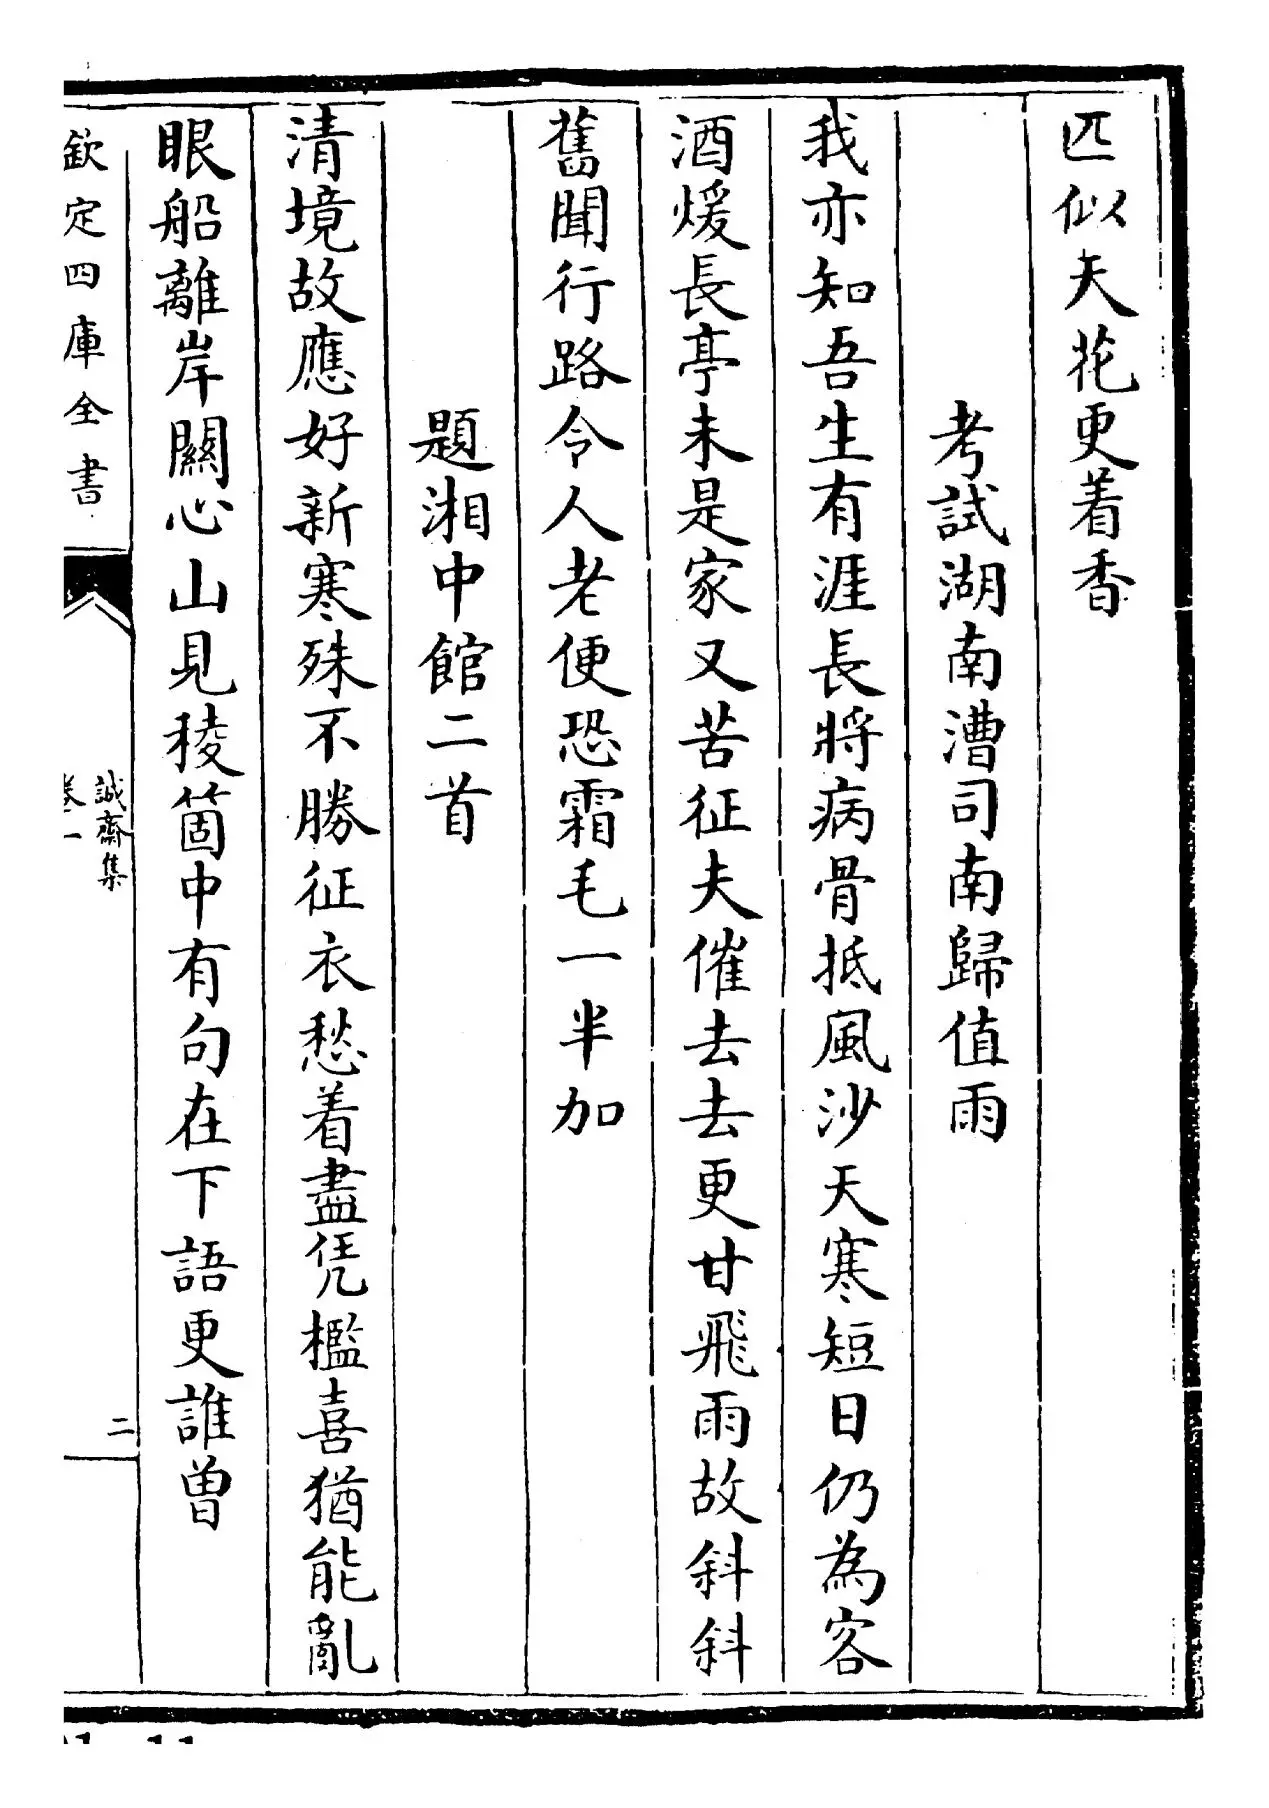 匹似天花更着香
考試湖南漕司南歸值雨
我亦知吾生有涯長將病骨抵風沙天寒短日仍為客
酒煖長亭未是家又苦征夫催去去更甘飛雨故斜斜
舊聞行路令人老便恐霜毛一半加
題湘中館二首
清境故應好新寒殊不勝征衣愁着盡凭檻喜猶能亂
眼船離岸關心山見稜箇中有句在下語更誰曾
欽定四庫全書
誠齋集
卷一
二